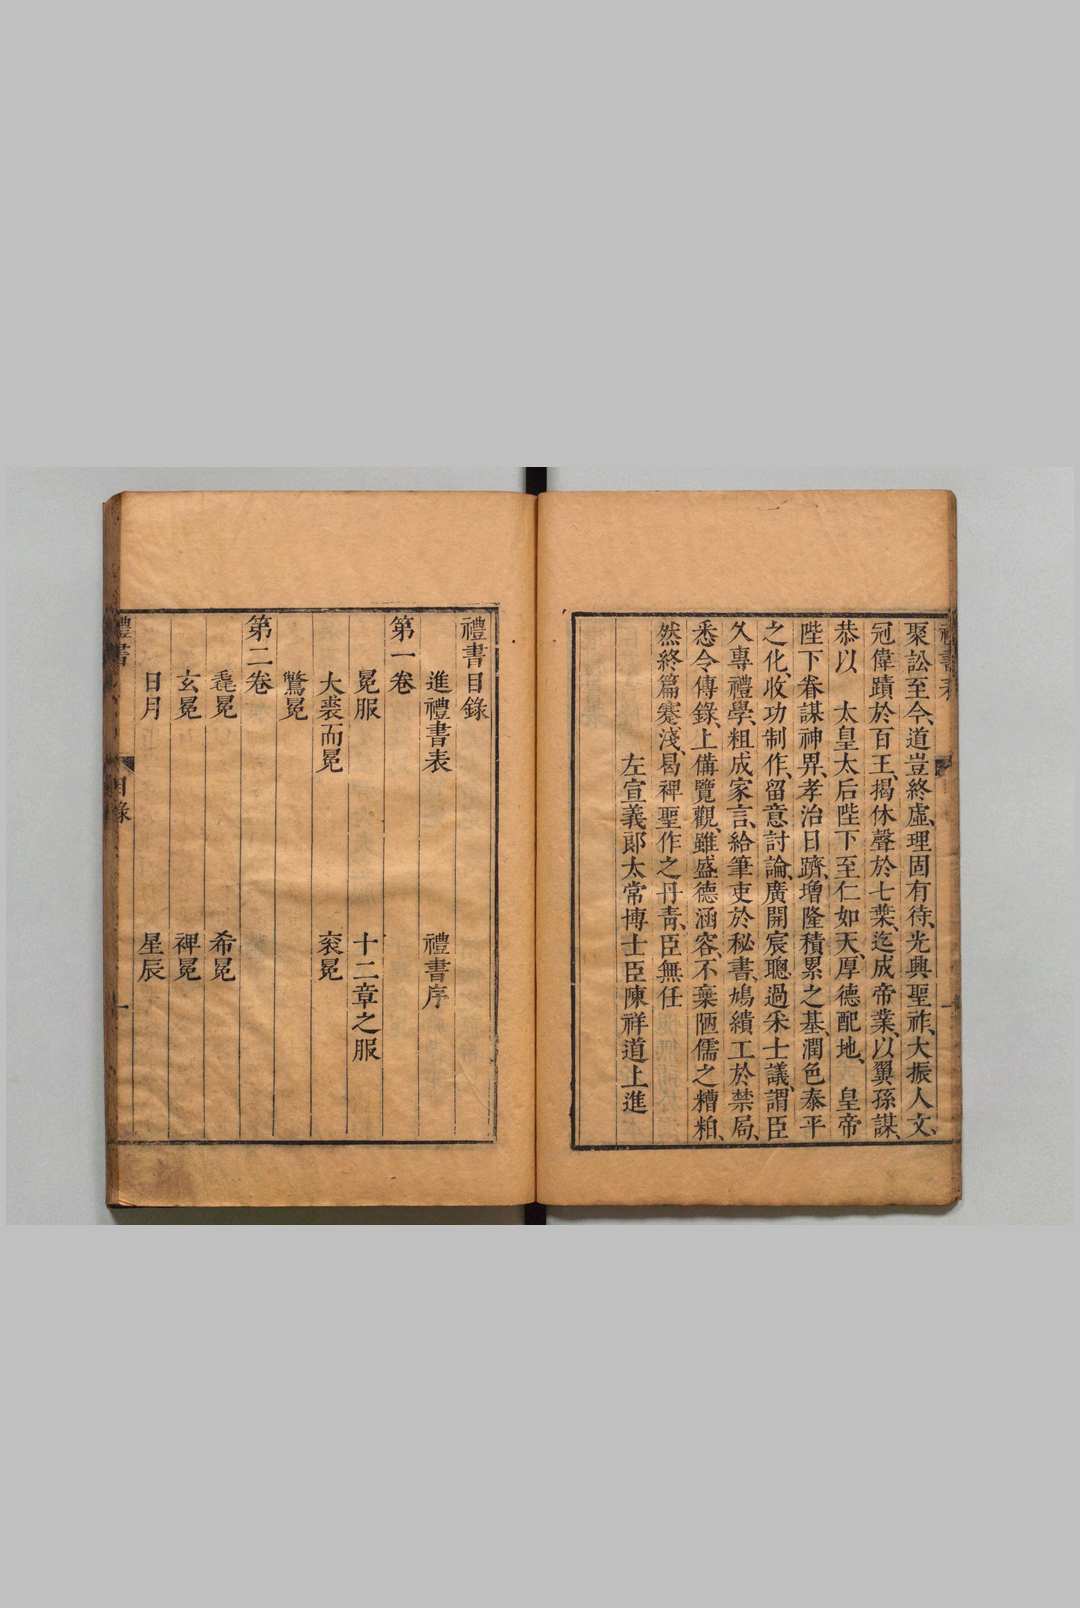 禮書表
聚訟至今、道豈終虛、理固有待、光興聖祚、大振人文、
冠偉蹟於百王、揭休聲於七葉、迄成帝業、以翼孫謀、
恭以　太皇太后陛下至仁如天、厚德配地、　皇帝
陛下眷謀神畀、孝治日躋、增隆積累之基、潤色泰平
之化、收功制作、留意討論、廣開宸聰、過采士議、謂臣
久專禮學、粗成家言、給筆吏於秘書、鳩繢工於禁局、
悉令傳錄、上備覽觀、雖盛德涵容、不棄陋儒之糟粕、
然終篇蹇淺、曷裨聖作之丹青、臣無任
左宣義郎太常博士臣陳祥道上進
禮書目錄
進禮書表　禮書序
第一卷
冕服　十二章之服
大裘而冕　衮冕
鷩冕
第二卷
毳冕　希冕
玄冕　裨冕
日月　星辰
禮書　目錄　一